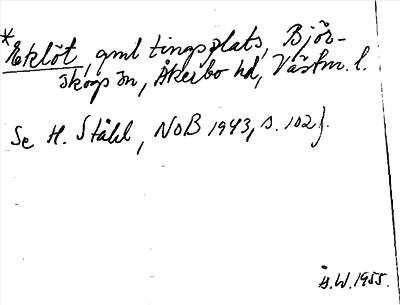 *Eklöt, gml tingsplats, Björ-
skogs sn, Åkerbo hd, Västm. l.
Se H. Ståhl, NoB 1943, s. 102 f.
Å.W. 1955.